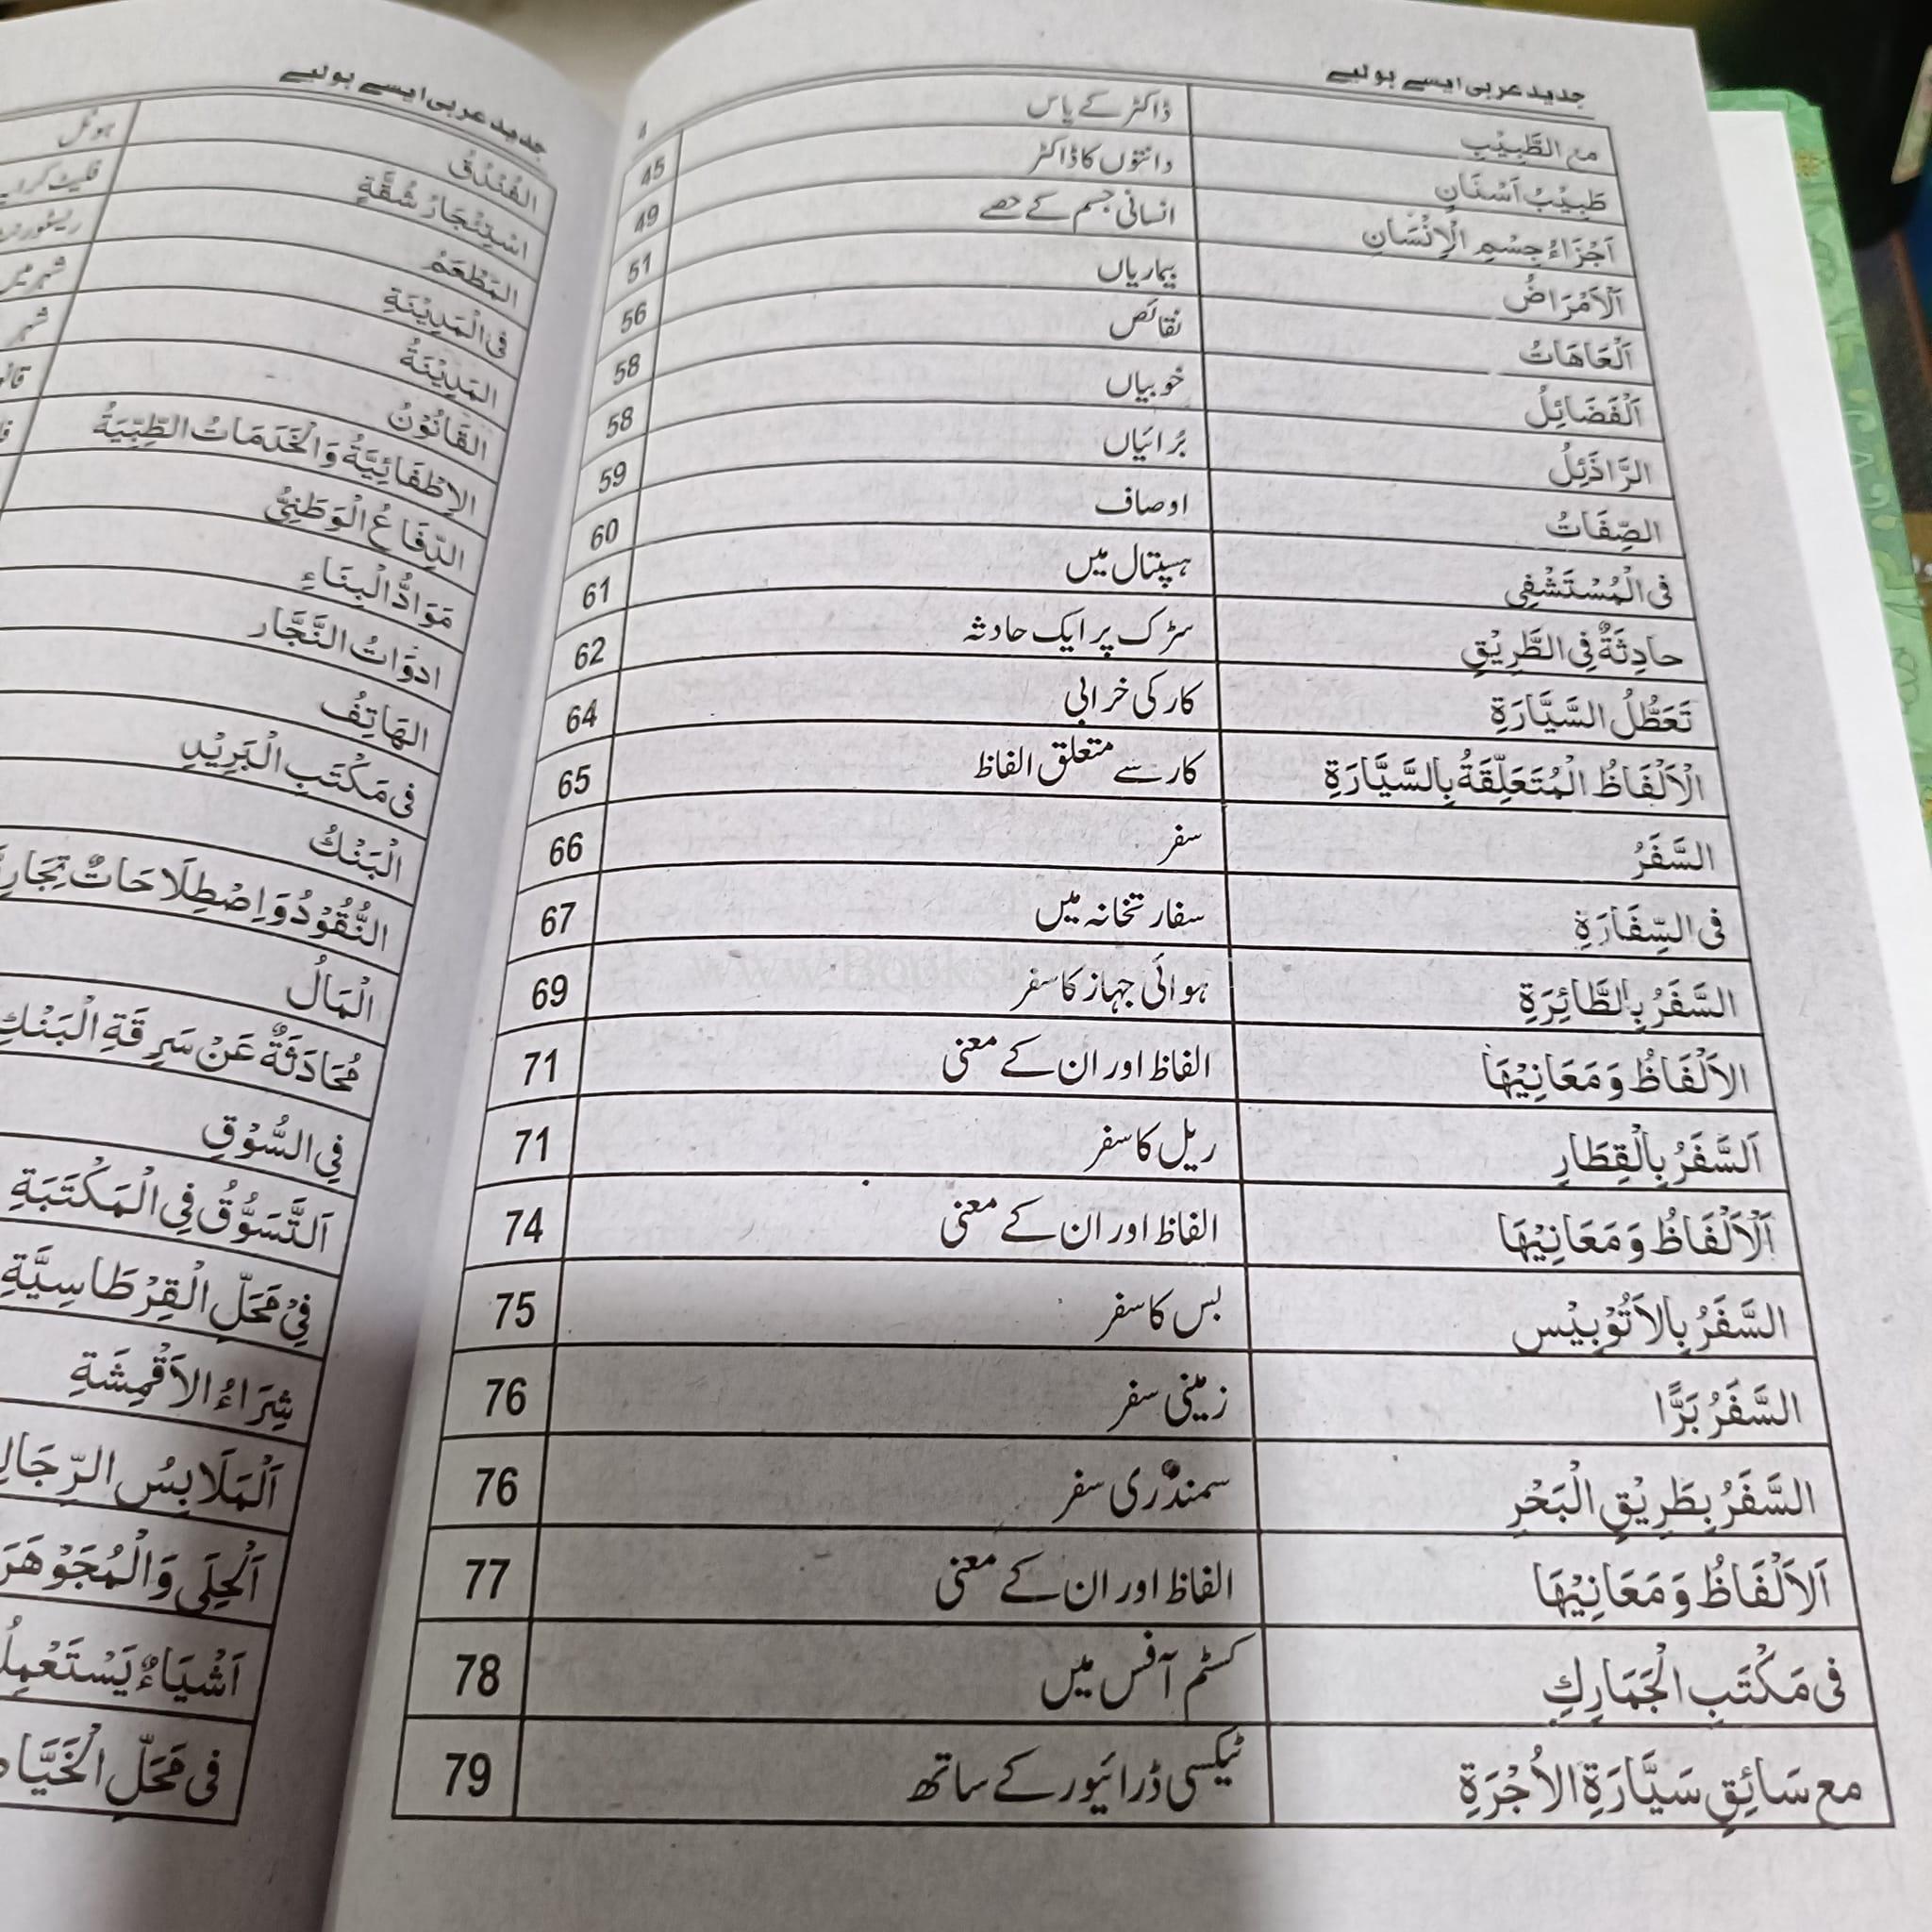 جدید عربی ایسے بولیے
مع الطَّبِيْبِ ڈاکٹر کے پاس 45
طَبِيْبُ اَسْنَانٍ دانتوں کا ڈاکٹر 49
اَجْزَاءُ جِسْمِ الْاِنْسَانِ انسانی جسم کے حصے 51
اَلْاَمْرَاضُ بیماریاں 56
اَلْعَاهَاتُ نقائص 58
اَلْفَضَائِلُ خوبیاں 58
الرَّاذَئِلُ بُرائیاں 59
الصِّفَاتُ اوصاف 60
فى الْمُسْتَشْفٰى ہسپتال میں 61
حادِثَةٌ فِى الطَّرِيْقِ سڑک پر ایک حادثہ 62
تَعَطُّلُ السَّيَّارَةِ کار کی خرابی 64
الْاَلْفَاظُ الْمُتَعَلِّقَةُ بِالسَّيَّارَةِ کار سے متعلق الفاظ 65
السَّفَرُ سفر 66
فى السِّفَارَةِ سفارتخانہ میں 67
السَّفَرُ بِالطَّائِرَةِ ہوائی جہاز کا سفر 69
الاَلْفَاظُ وَمَعَانِيْهَا الفاظ اور ان کے معنی 71
اَلسَّفَرُ بِالْقِطَارِ ریل کا سفر 71
اَلْاَلْفَاظُ وَمَعَانِيْهَا الفاظ اور ان کے معنی 74
السَّفَرُ بِالاَتُوْبِيْس بس کا سفر 75
السَّفَرُ بَرًّا زمینی سفر 76
السَّفَرُ بِطَرِيْقِ الْبَحْرِ سمندری سفر 76
اَلاَلْفَاظُ وَمَعَانِيْهَا الفاظ اور ان کے معنی 77
فى مَكْتَبِ الْجَمَارِكِ کسٹم آفس میں 78
مع سَائِقِ سَيَّارَةِ الاُجْرَةِ ٹیکسی ڈرائیور کے ساتھ 79
جدید عربی ایسے بولیے
الفُنْدُقُ ہوٹل
اسْتِئْجَارُ شُقَّةٍ فلیٹ
المَطْعَمُ
فى الْمَدِيْنَةِ شہر میں
المَدِيْنَةُ شہر
القَانُوْنُ
الاِطْفَائِيَّةُ وَالْخَدَمَاتُ الطِّبِّيَةُ
الدِّفَاعُ الْوَطَنِىُّ
مَوَادُّ الْبِنَاءِ
ادوَاتُ النَّجَّار
الهَاتِفُ
فى مَكْتَبِ الْبَرِيْدِ
الْبَنْكُ
النُّقُوْدُ وَاِصْطِلَاحَاتٌ
الْمَالُ
مُحَادَثَةٌ عَنْ سَرِقَةِ الْبَنْكِ
فِي السُّوْقِ
اَلتَّسَوُّقُ فِي الْمَكْتَبَةِ
فِيْ مَحَلِّ الْقِرْطَاسِيَّةِ
شِرَاءُ الاَقْمِشَةِ
اَلْمَلَابِسُ
اَلْحِلَى
اَشْيَاءٌ
فى مَحَلِّ